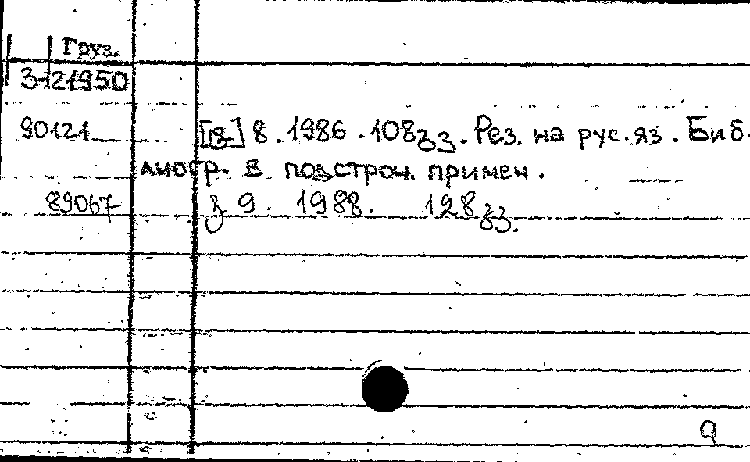 Груз.
3-21950
90121 [გ] 8. 1986. 108გვ. Рез. на рус. яз. Биб-
лиогр. в подстроч. примеч.
89067 გ 9. 1988. 128გვ.
9